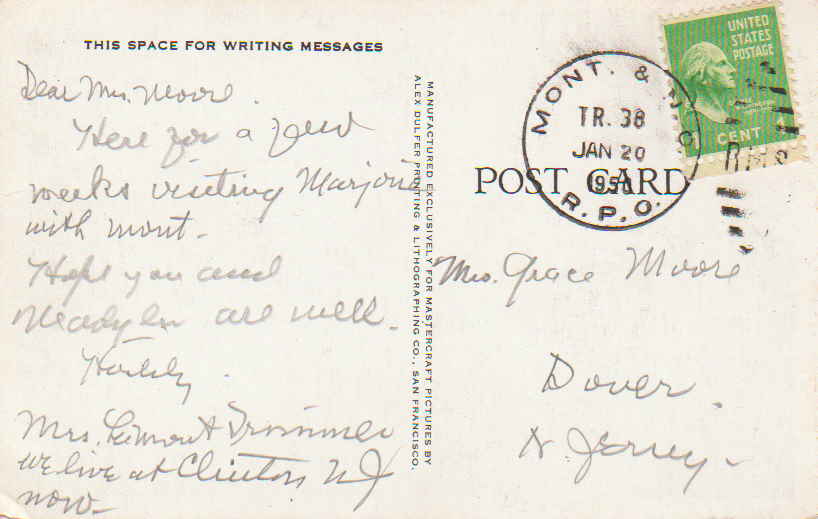 THIS SPACE FOR WRITING MESSAGES
Dear Mrs. Moore.
Here for a few
weeks visiting Marjorie
with Mont.
Hope you and
are well.
Mrs.
we live at Clinton NJ
now—
MANUFACTURED EXCLUSIVELY FOR MASTERCRAFT PICTURES BY
ALEX DULFER PRINTING & LITHOGRAPHING CO., SAN FRANCISCO.
UNITED
STATES
POSTAGE
CENT
MONT. & N.O.
TR. 38
JAN 20
R.P.O.
POST CARD
Mrs. Grace Moore
Dover.
N. Jersey—